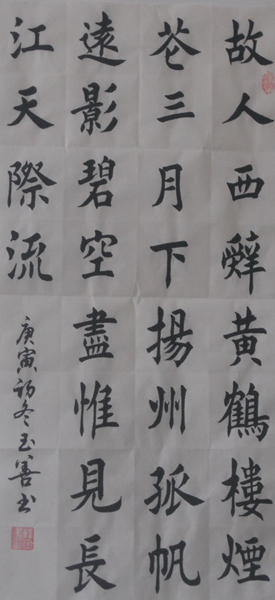 故人西辭黃鶴樓煙
花三月下揚州孤帆
遠影碧空盡惟見長
江天際流
庚寅初冬玉善书